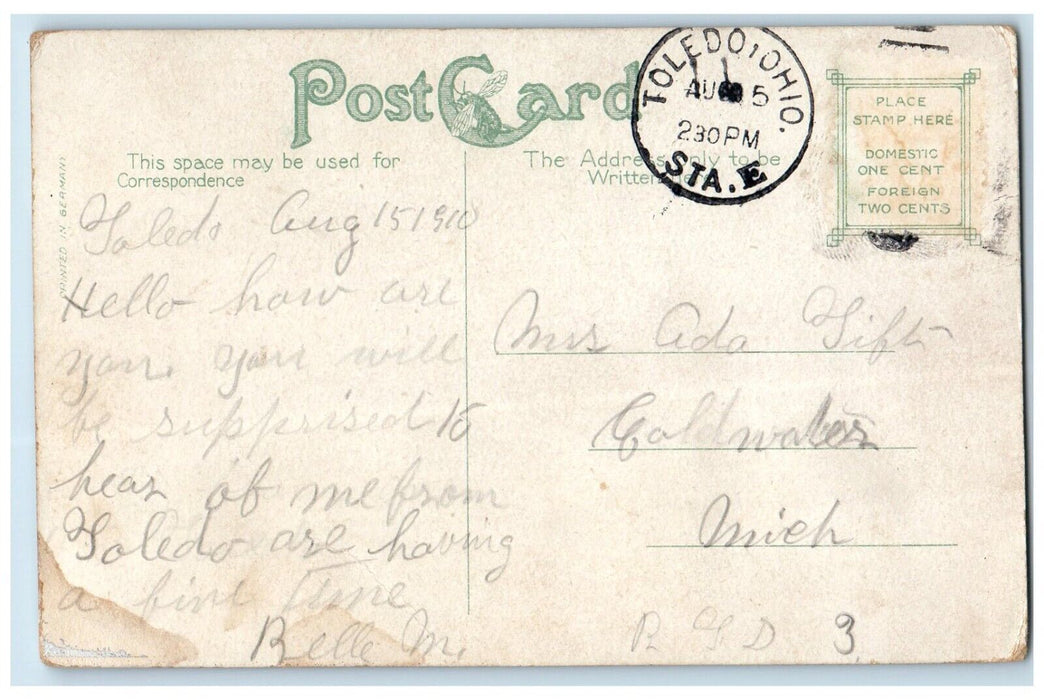 Post Card
This space may be used for
Correspondence
The Address only to be
Written here
TOLEDO, OHIO.
AUG 5
230PM
STA. E
PLACE
STAMP HERE
DOMESTIC
ONE CENT
FOREIGN
TWO CENTS
PRINTED IN GERMANY
Toledo Aug 15 1910
Hello how are
you. you will
be supprised to
hear of me from
Toledo are having
a fine time
Belle M.
Mrs Ada Tift
Coldwater
Mich
R F D 3